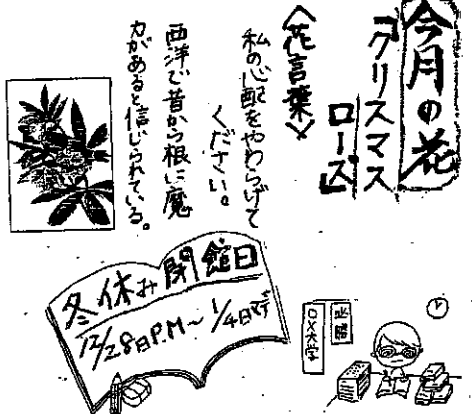 今月の花
『クリスマス
ローズ』
〈花言葉〉
私の心配をやわらげて
ください。
西洋で昔から根に魔
力があると信じられている。
冬休み閉館日
12/28日P.M〜1/4日まで
必勝
○×大学